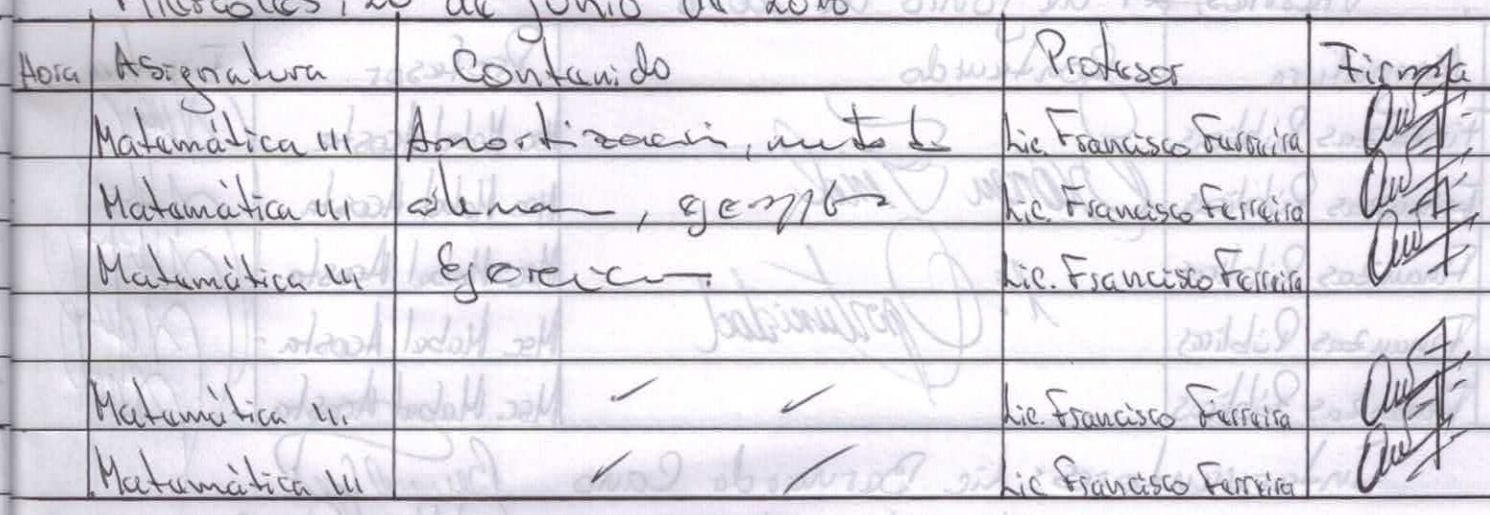 Miércoles, 20 de junio de
Hora Asignatura Contenido Profesor Firma
Matemática III Amortización, Lic. Francisco Ferreira
Matemática III alemán, ejemplos Lic. Francisco Ferreira
Matemática III Ejercicios. Lic. Francisco Ferreira
Matemática III ✓ ✓ Lic. Francisco Ferreira
Matemática III ✓ ✓ Lic. Francisco Ferreira